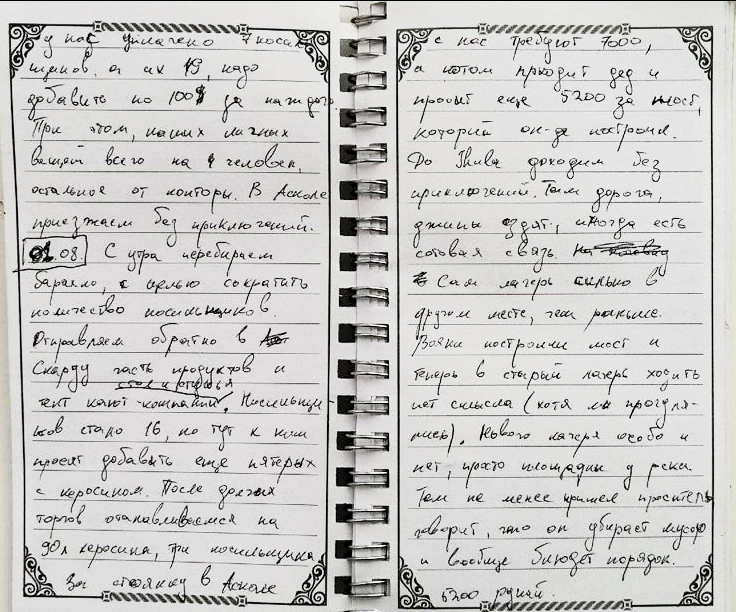 у нас уплачено 7 носиль
щиков, а их 19, надо
добавить по 100$ за каждого.
При этом, наших личных
вещей всего на 4 человек,
остальное от конторы. В Асколе
приезжаем без приключений.
01.08. С утра перебираем
барахло, с целью сократить
количество носильщиков.
Отправляем обратно в
Скарду часть продуктов и
стол и стулья
тент кают-компании. Носильщи-
ков стало 16, но тут к ним
просят добавить еще пятерых
с керосином. После долгих
торгов останавливаемся на
90л керосина, три носильщика
За стоянку в Асколе
с нас требуют 7000,
а потом приходит дед и
просит еще 5200 за мост,
который он-де построил.
До Тхива доходим без
приключений. Там дорога,
джипы ездят, иногда есть
сотовая связь.
Сам лагерь сильно в
другом месте, чем раньше.
Вояки построили мост и
теперь в старый лагерь ходить
нет смысла (хотя мы прогуля-
лись). Нового лагеря особо и
нет, просто площадки у реки.
Тем не менее пришел проситель
говорит, что он убирает мусор
и вообще блюдет порядок.
5200 рупий.